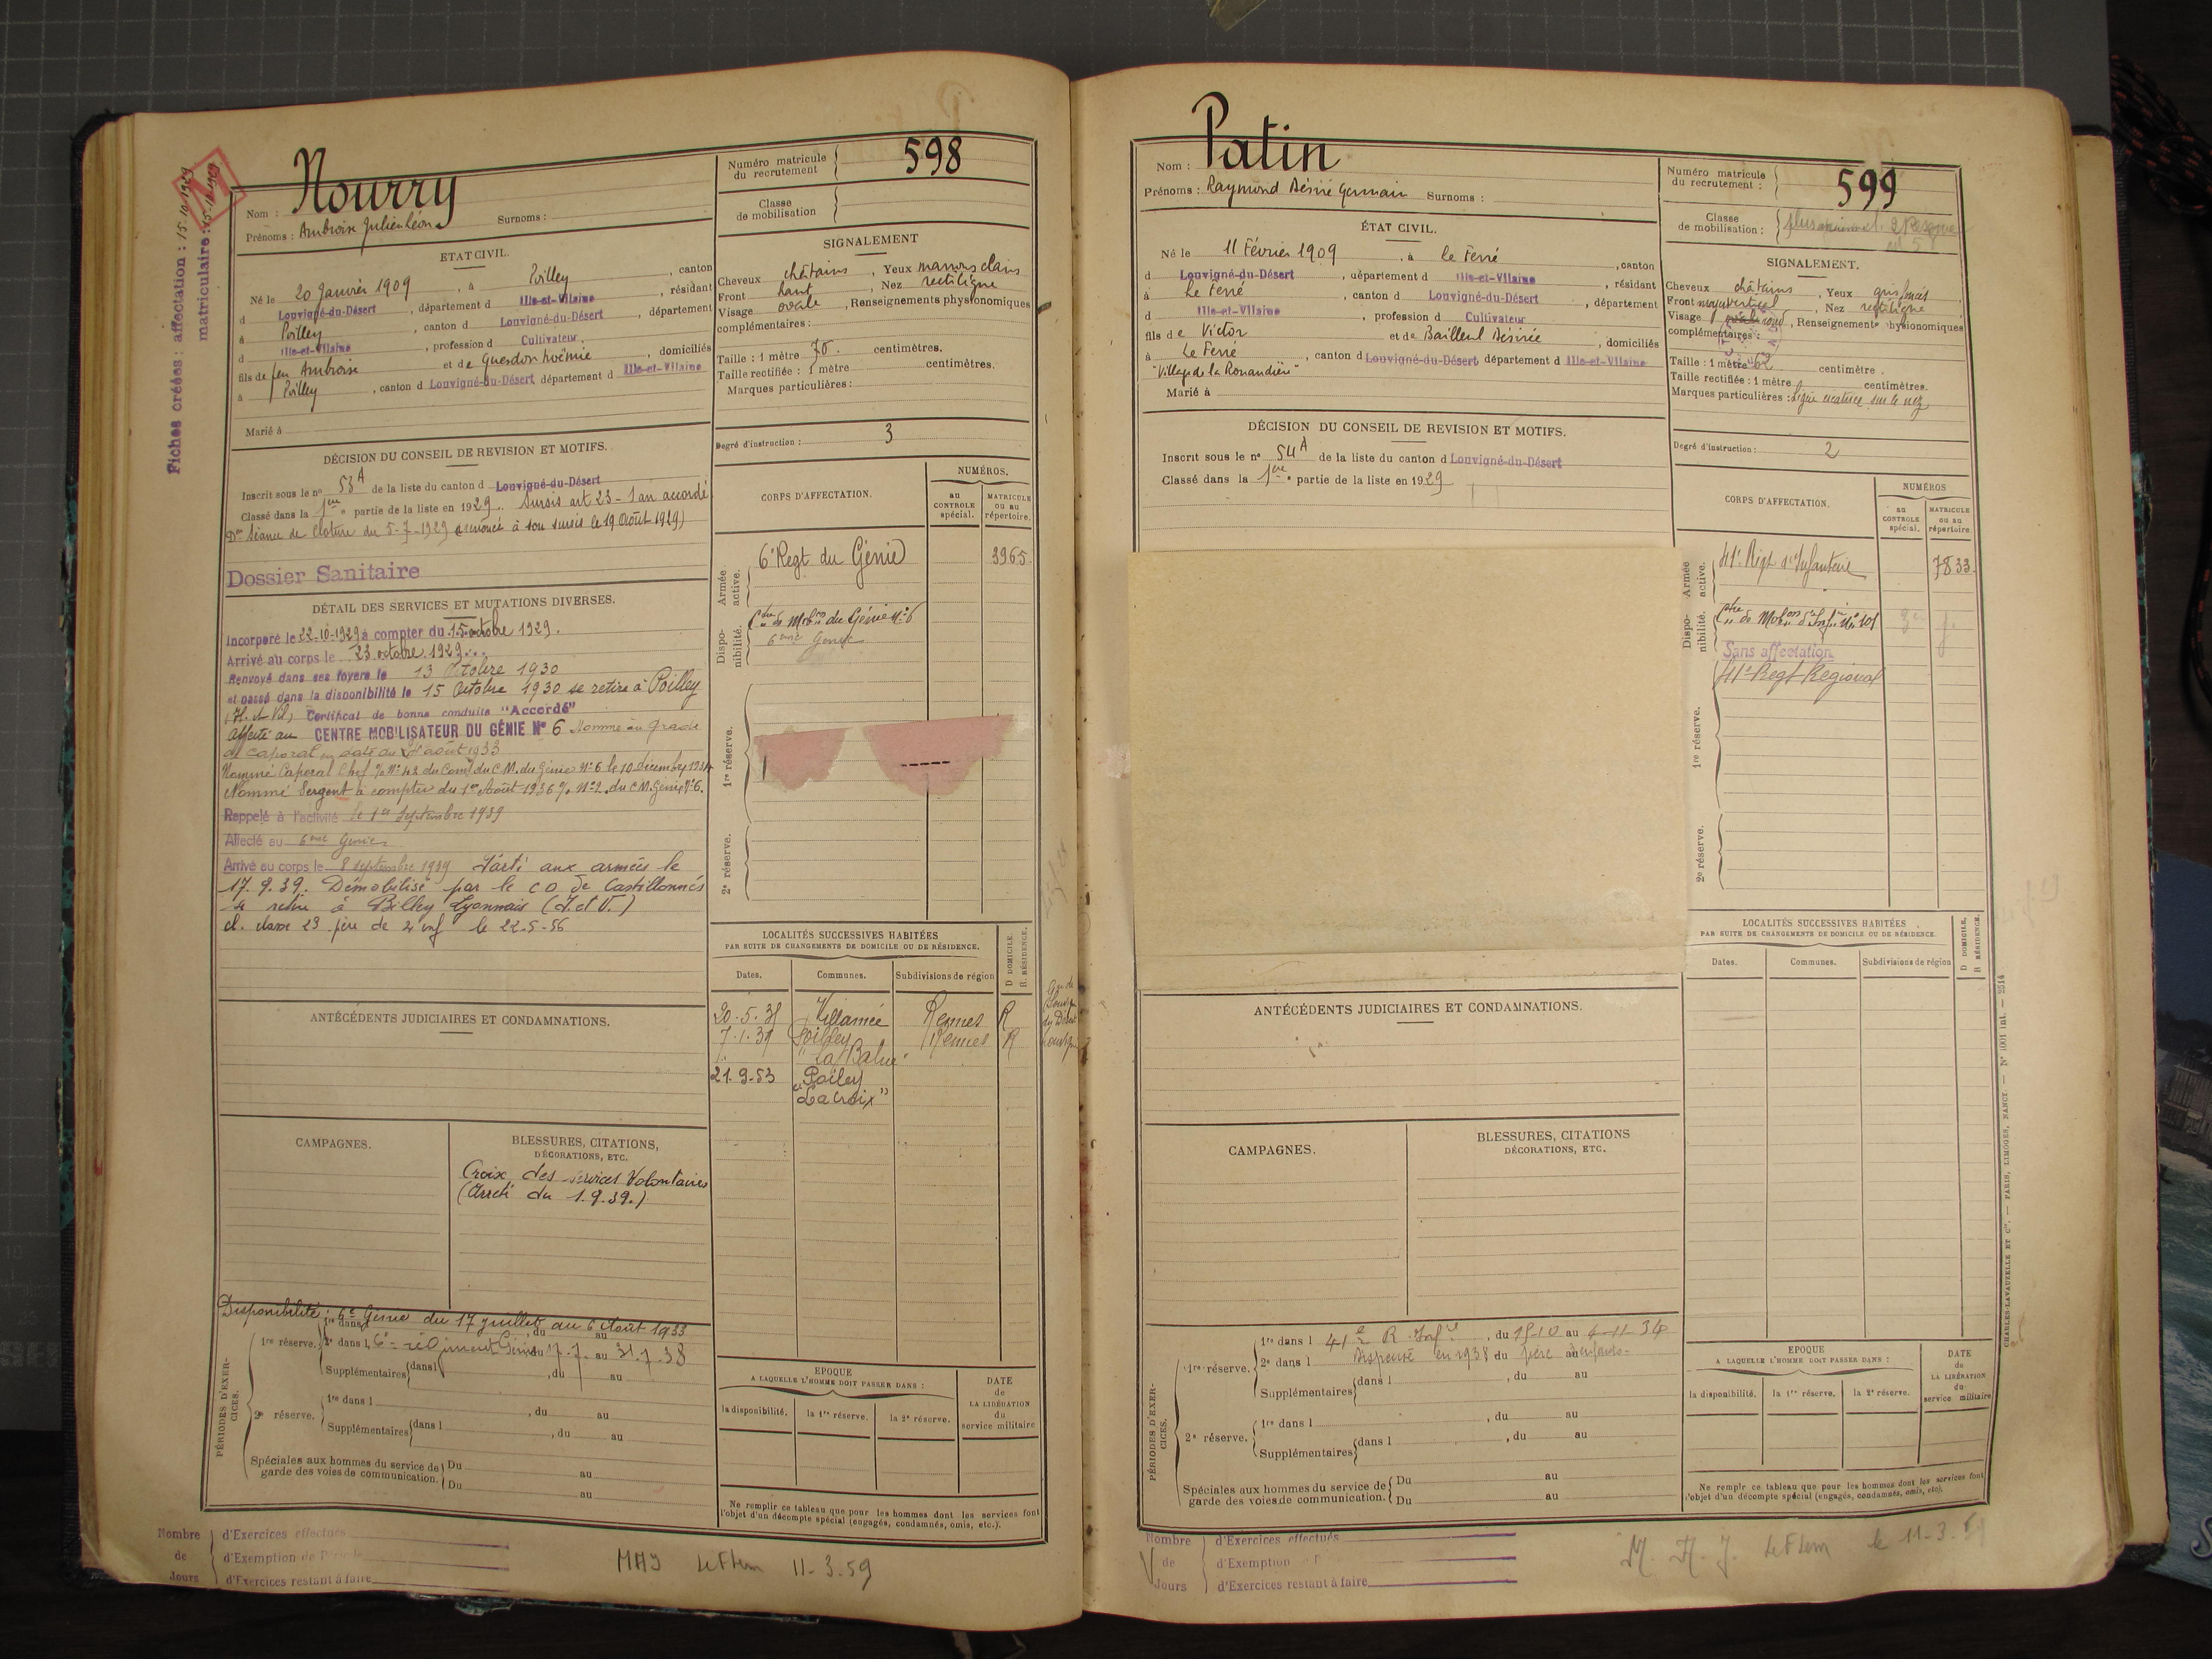 Fiches créées : affectation : 15.10.1929
matriculaire : 15.10.1929
M
Nom : Nourry
Prénoms : Ambroise Julien Léon Surnoms :
ETAT CIVIL.
Né le 20 Janvier 1909, à Poilley, canton
d Louvigné-du-Désert, département d Ille-et-Vilaine, résidant
à Poilley, canton d Louvigné-du-Désert, département
d Ille-et-Vilaine, profession d Cultivateur,
fils de feu Ambroise et de Guesdon Noémie, domiciliés
à Poilley, canton d Louvigné-du-Désert département d Ille-et-Vilaine
Marié à
DÉCISION DU CONSEIL DE REVISION ET MOTIFS.
Inscrit sous le n° 53 A de la liste du canton d Louvigné-du-Désert
Classé dans la 1ere partie de la liste en 1929. Sursis art 23 - 1 an accordé
Séance de cloture du 5-7-1929 (renoncé à son sursis le 19 Août 1929)
Dossier Sanitaire
DÉTAIL DES SERVICES ET MUTATIONS DIVERSES.
Incorporé le 22-10-1929 à compter du 15 octobre 1929.
Arrivé au corps le 23 octobre 1929...
Renvoyé dans ses foyers le 13 Octobre 1930
et passé dans la disponibilité le 15 Octobre 1930 se retire à Poilley
(I. et Vil) Certificat de bonne conduite "Accordé"
Affecté au CENTRE MOBILISATEUR DU GÉNIE N° 6 Nommé au grade
de Caporal en date du août 1933
Nommé Caporal Chef % N° 42 du Comt du C.M. du Génie N° 6 le 10 décembre 1934
Nommé Sergent à compter du 1er Août 1936 % N° 2 du C.M. Génie N° 6.
Rappelé à l'activité le 1er Septembre 1939
Affecté au 6eme Génie
Arrivé au corps le 8 septembre 1939 Parti aux armées le
17.9.39. Démobilisé par le C D de Castillonnés
se retire à Billey Lyonnais (I. et V.)
cl. classe 23 père de 2 inf le 22-5-56
ANTÉCÉDENTS JUDICIAIRES ET CONDAMNATIONS.
CAMPAGNES.
BLESSURES, CITATIONS,
DÉCORATIONS, ETC.
Croix des services Volontaires
(Arreté du 1.9.39.)
Disponibilité : 6e Génie du 17 juillet au 6 Août 1933
PÉRIODES D'EXERCICES.
1re réserve. 1re dans l du au
2e dans l 6e régiment Génie du 17-7- au 31.7.38
Supplémentaires dans l, du au
2e réserve. 1re dans l, du au
Supplémentaires dans l, du au
Spéciales aux hommes du service de garde des voies de communication. Du au
Du au
Nombre de Jours
d'Exercices effectués
d'Exemption de Période
d'Exercices restant à faire
MAJ Le Flem 11-3.59
Numéro matricule du recrutement 598
Classe de mobilisation
SIGNALEMENT
Cheveux châtains, Yeux marrons clairs
Front haut, Nez rectiligne
Visage ovale, Renseignements physionomiques
complémentaires :
Taille : 1 mètre 70. centimètres.
Taille rectifiée : 1 mètre centimètres.
Marques particulières :
Degré d'instruction : 3
CORPS D'AFFECTATION.
NUMÉROS.
au CONTROLE spécial.
MATRICULE ou au répertoire.
Armée active. 6e Regt du Génie 3965
Disponibilité. Ctre de Mobon du Génie N° 6
6eme Génie
1re réserve.
2e réserve.
LOCALITÉS SUCCESSIVES HABITÉES
PAR SUITE DE CHANGEMENTS DE DOMICILE OU DE RÉSIDENCE.
Dates. Communes. Subdivisions de région D DOMICILE. R RÉSIDENCE.
20.5.35 Villamée Rennes R
7.1.39 Poilley Rennes R
"La Balue"
21.9.53 Poiley
"Lacroix"
EPOQUE
A LAQUELLE L'HOMME DOIT PASSER DANS :
la disponibilité. la 1re réserve. la 2e réserve.
DATE de LA LIBÉRATION du service militaire
Ne remplir ce tableau que pour les hommes dont les services font
l'objet d'un décompte spécial (engagés, condamnés, omis, etc.).
Nom : Patin
Prénoms : Raymond Désiré Germain Surnoms :
ÉTAT CIVIL.
Né le 11 Février 1909, à le Ferré, canton
d Louvigné-du-Désert, département d Ille-et-Vilaine, résidant
à Le Ferré, canton d Louvigné-du-Désert, département
d Ille-et-Vilaine, profession d Cultivateur
fils de Victor et de Bailleul Désirée, domiciliés
à Le Ferré, canton d Louvigné-du-Désert département d Ille-et-Vilaine
"Village de la Ronandière"
Marié à
DÉCISION DU CONSEIL DE REVISION ET MOTIFS.
Inscrit sous le n° 54 A de la liste du canton d Louvigné-du-Désert
Classé dans la 1ere partie de la liste en 1929
ANTÉCÉDENTS JUDICIAIRES ET CONDAMNATIONS.
CAMPAGNES.
BLESSURES, CITATIONS
DÉCORATIONS, ETC.
PÉRIODES D'EXERCICES.
1re réserve. 1re dans l 41e R. Infie, du 15-10 au 4-11-34
2e dans l Dispensé en 1938 du père au enfants.
Supplémentaires dans l, du au
2e réserve. 1re dans l, du au
Supplémentaires dans l, du au
Spéciales aux hommes du service de garde des voies de communication. Du au
Du au
Nombre de Jours
d'Exercices effectués
d'Exemption
d'Exercices restant à faire
M. A. J. Le Flem le 11-3.59
Numéro matricule du recrutement : 599
Classe de mobilisation :
SIGNALEMENT.
Cheveux châtains, Yeux gris foncés
Front moy vertical, Nez rectiligne
Visage ovale rond, Renseignements physionomiques
complémentaires :
Taille : 1 mètre 62 centimètre.
Taille rectifiée : 1 mètre centimètres.
Marques particulières : légère cicatrice sur le nez
Degré d'instruction : 2
CORPS D'AFFECTATION.
NUMÉROS
au CONTROLE spécial.
MATRICULE ou au répertoire.
Armée active. 41e Régt d'Infanterie 7833
Disponibilité. Ctre de Mobon d'Infie N° 101
Sans affectation
41e Regt Régional
1re réserve.
2e réserve.
LOCALITÉS SUCCESSIVES HABITÉES
PAR SUITE DE CHANGEMENTS DE DOMICILE OU DE RÉSIDENCE.
Dates. Communes. Subdivisions de région D DOMICILE. R RÉSIDENCE.
EPOQUE
A LAQUELLE L'HOMME DOIT PASSER DANS :
la disponibilité. la 1re réserve. la 2e réserve.
DATE de LA LIBÉRATION du service militaire
Ne remplir ce tableau que pour les hommes dont les services font
l'objet d'un décompte spécial (engagés, condamnés, omis, etc).
CHARLES-LAVAUZELLE ET Cie. — PARIS, LIMOGES, NANCY. — N° 1001 int. — 2514